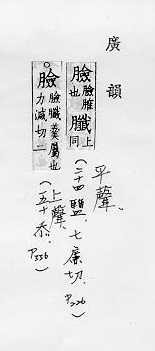 廣韻
臉 臉䐒也 䐶 上同
平聲、
(二十四鹽、七廉切、P.226)
臉 臉䐶羹屬也力減切二
上聲、
(五十
P.336)